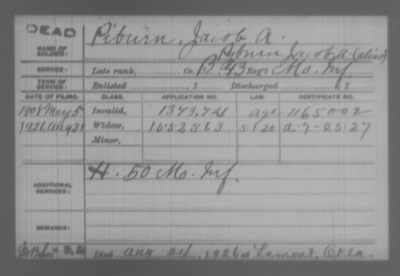 DEAD
NAME OF SOLDIER: Piburn, Jacob A.
Jacob A (alias)
SERVICE: Late rank, Co. B, 43 Reg't Mo. Inf
TERM OF SERVICE: Enlisted , 1 Discharged , 1
DATE OF FILING. CLASS. APPLICATION NO. LAW. CERTIFICATE NO.
1908 May 5 Invalid, age 1165002
1926 Aug 31 Widow, A-7-26-27
Minor,
ADDITIONAL SERVICES: H. 50 Mo. Inf.
REMARKS:
Died Aug 1926 at Lamont, Okla.